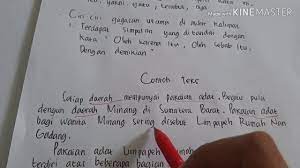 yakni, yaitu, tersebut, aja
Made With KINEMASTER
Ciri ciri gagasan utama di akhir kalimat
Terdapat simpulan yang ditandai dengan
Kata " Oleh karena itu, Oleh sebab itu,
Dengan demikian"
Contoh teks
Setiap daerah mempunyai pakaian adat. Begitu pula
dengan daerah Minang di Sumatera Barat. Pakaian adat
bagi wanita Minang sering disebut Limpapeh Rumah Nan
Gadang.
Pakaian adat Limpapeh
terdiri atas beberapa bagian